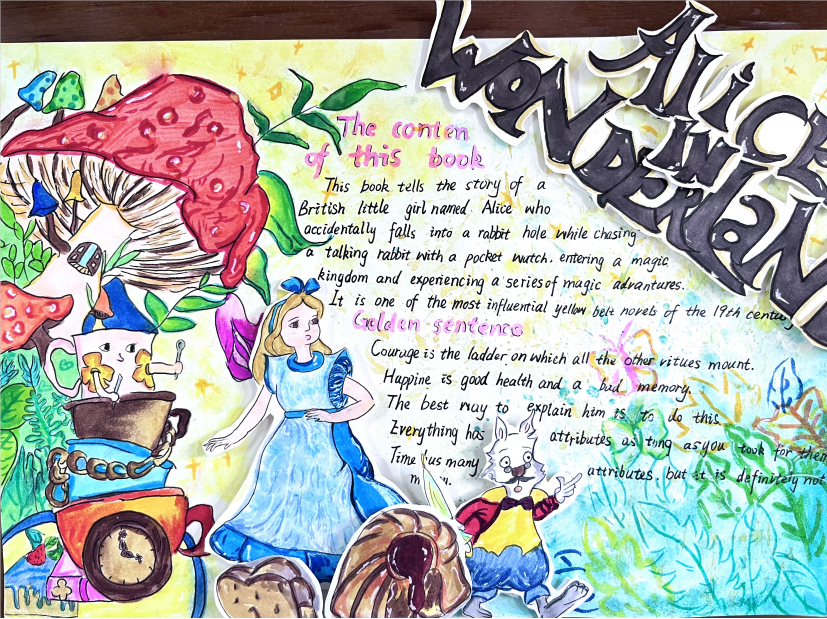 WONDERLAND
ALICE
IN
The conten
of this book
This book tells the story of a
British little girl named Alice who
accidentally falls into a rabbit hole while chasing
a talking rabbit with a pocket watch. entering a magic
kingdom and experiencing a series of magic advantures.
It is one of the most influential yellow belt novels of the 19th century
Golden sentence
Courage is the ladder on which all the other vitues mount.
Happine is good health and a bad memory.
The best way to explain him is to do this
Everything has attributes as long as you look for them
Time has many attributes. but it is definitely not